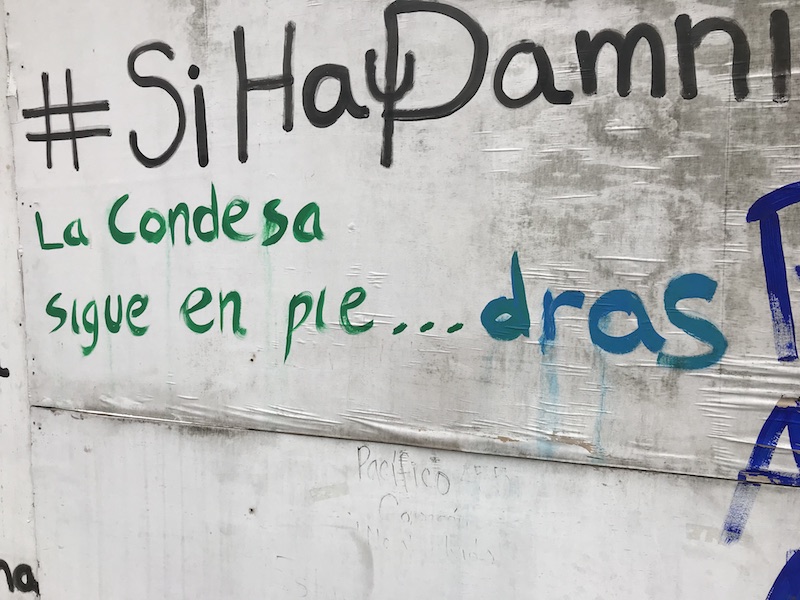 #SiHayDamni
La Condesa
sigue en pie...dras
Pacífico